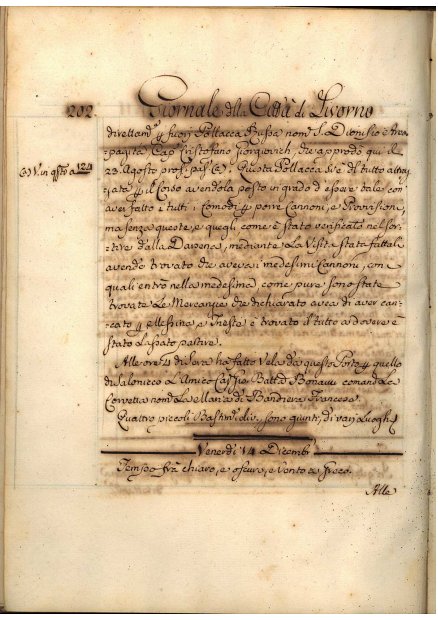 202. Giornale della Città di Livorno
direttamte p fuori Pollacca Russa nom. S. Dionisio e Areo-
pagita, Cap. Cristofano Giorgovich, che approdò qui il
29. Agosto pros. pas.
(a) V. in qsto a 124
Questa Pollacca s'è del tutto
p il Corso avendola posto in grado d'essere tale con
aver fatto i tutti i comodi p porre Cannoni, e Provisioni,
ma senza queste, e quegli come è stato verificato nel sor-
tire dalla Darsena, mediante la Visita stata fattale
avendo trovato che aveva i medesimi Cannoni, con
quali entrò nella medesima come pure sono state
trovate le Mercanzie che dichiarato avea di aver cari-
cato p Messina, e Trieste e trovato il tutto a dovere è
stato lasciato partire.
Alle ore 4 di Sera ha fatto Vela da questo Porto p quello
di Salonicco Batta Bonavii comanda la
Corvetta nom. la Maria di Bandiera Francese.
Quattro piccoli Bastimti sono giunti, di varj Luoghi
Venerdì 14 Dicembr
Tempo frà chiaro, e oscuro, e Vento a freco.
Alle